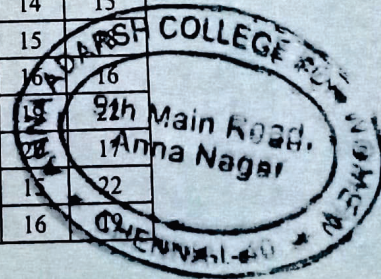 14 15
15
16 16
22
17
15 22
16 19
ADARSH COLLEGE FOR WOMEN
9th Main Road,
Anna Nagar
CHENNAI-40